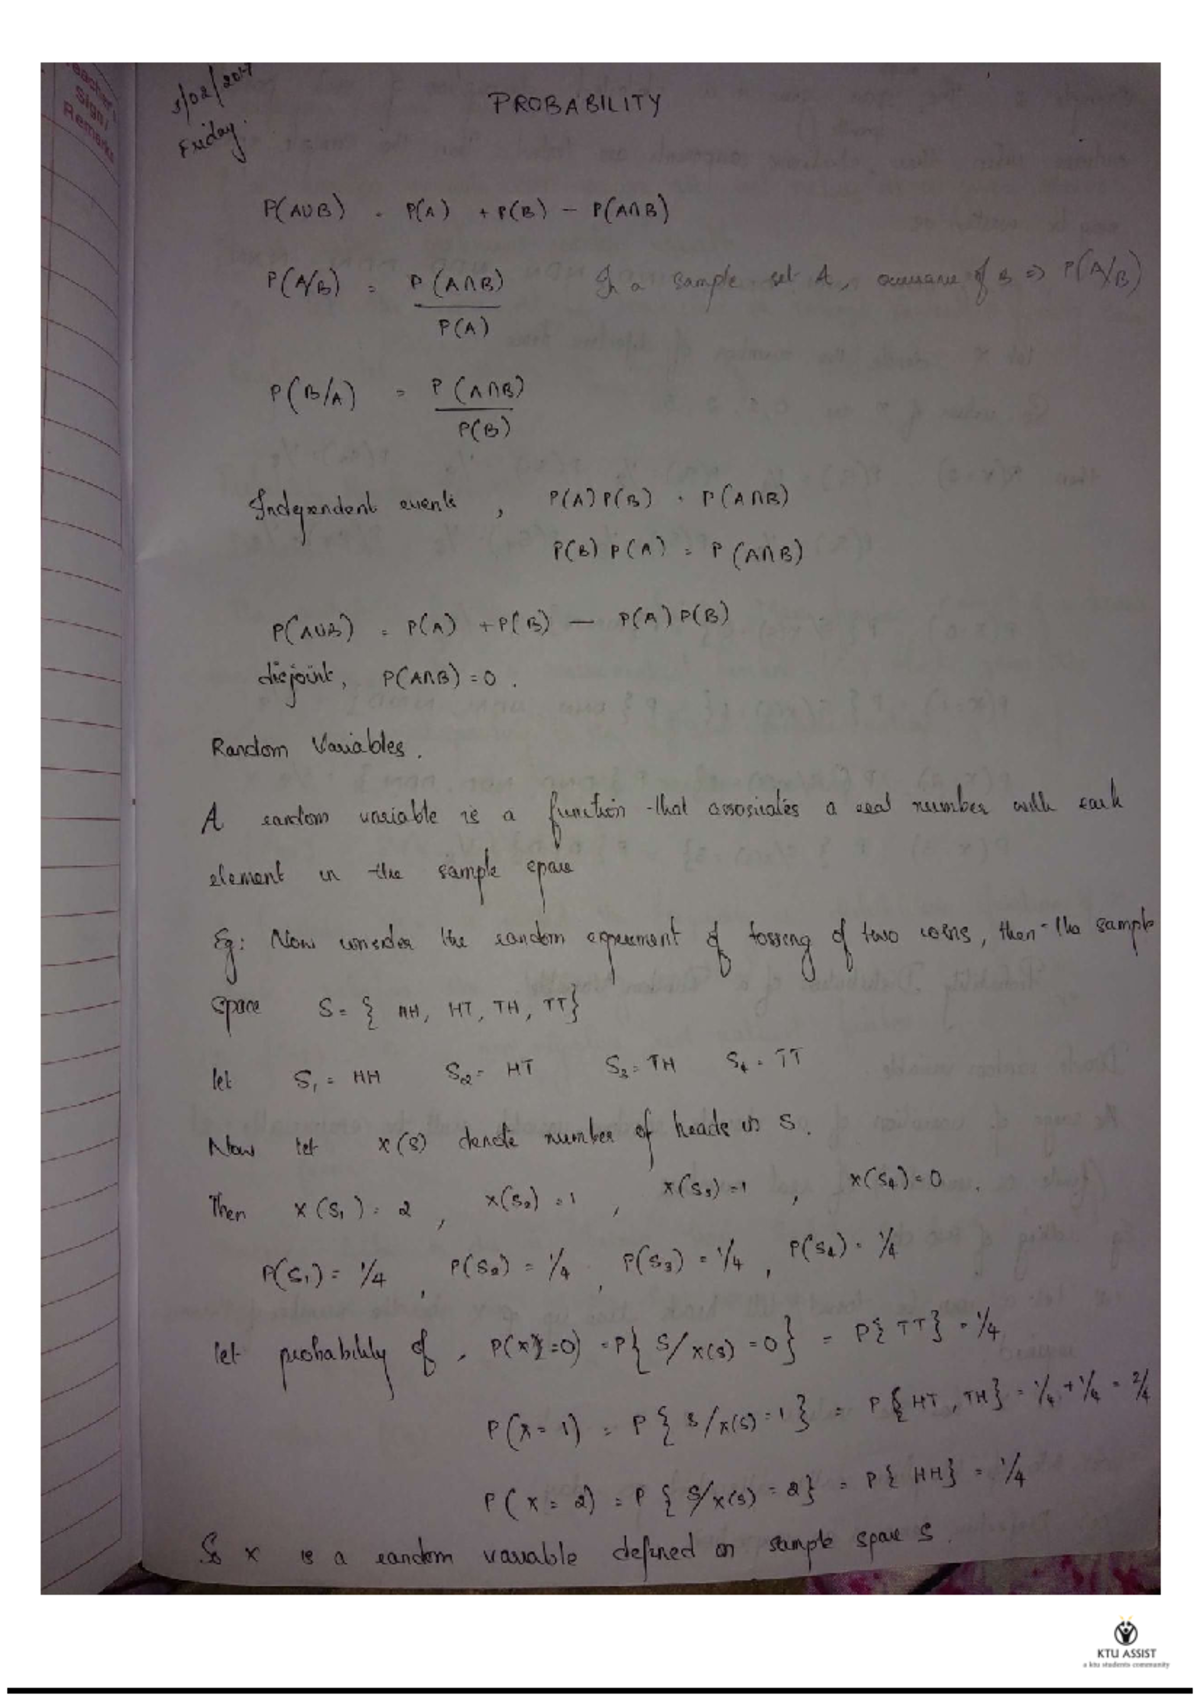 Teacher's
Sign/
Remarks
3/02/2017
Friday.
PROBABILITY
P(A∪B) = P(A) + P(B) − P(A∩B)
P(A/B) = P(A∩B) / P(A) In a sample set A, occurance of B ⇒ P(A/B)
P(B/A) = P(A∩B) / P(B)
Independent events, P(A)P(B) = P(A∩B)
P(B)P(A) = P(A∩B)
P(A∪B) = P(A) + P(B) − P(A)P(B)
disjoint, P(A∩B) = 0.
Random Variables.
A random variable is a function that assosiates a real number with each
element in the sample space
Eg: Now consider the random experiment of tossing of two coins, then the sample
space S = { HH, HT, TH, TT}
let S₁ = HH S₂ = HT S₃ = TH S₄ = TT
Now let x(s) denote number of heads in S.
Then x(S₁) = 2, x(S₂) = 1, x(S₃) = 1, x(S₄) = 0.
P(S₁) = 1/4, P(S₂) = 1/4, P(S₃) = 1/4, P(S₄) = 1/4
let probability of, P(x=0) = P{ S/x(s) = 0} = P{ TT} = 1/4
P(x = 1) = P{ S/x(s) = 1} = P{ HT, TH} = 1/4 + 1/4 = 2/4
P(x = 2) = P{ S/x(s) = 2} = P{ HH} = 1/4
So x is a random variable defined on sample space S.
KTU ASSIST
a ktu students community